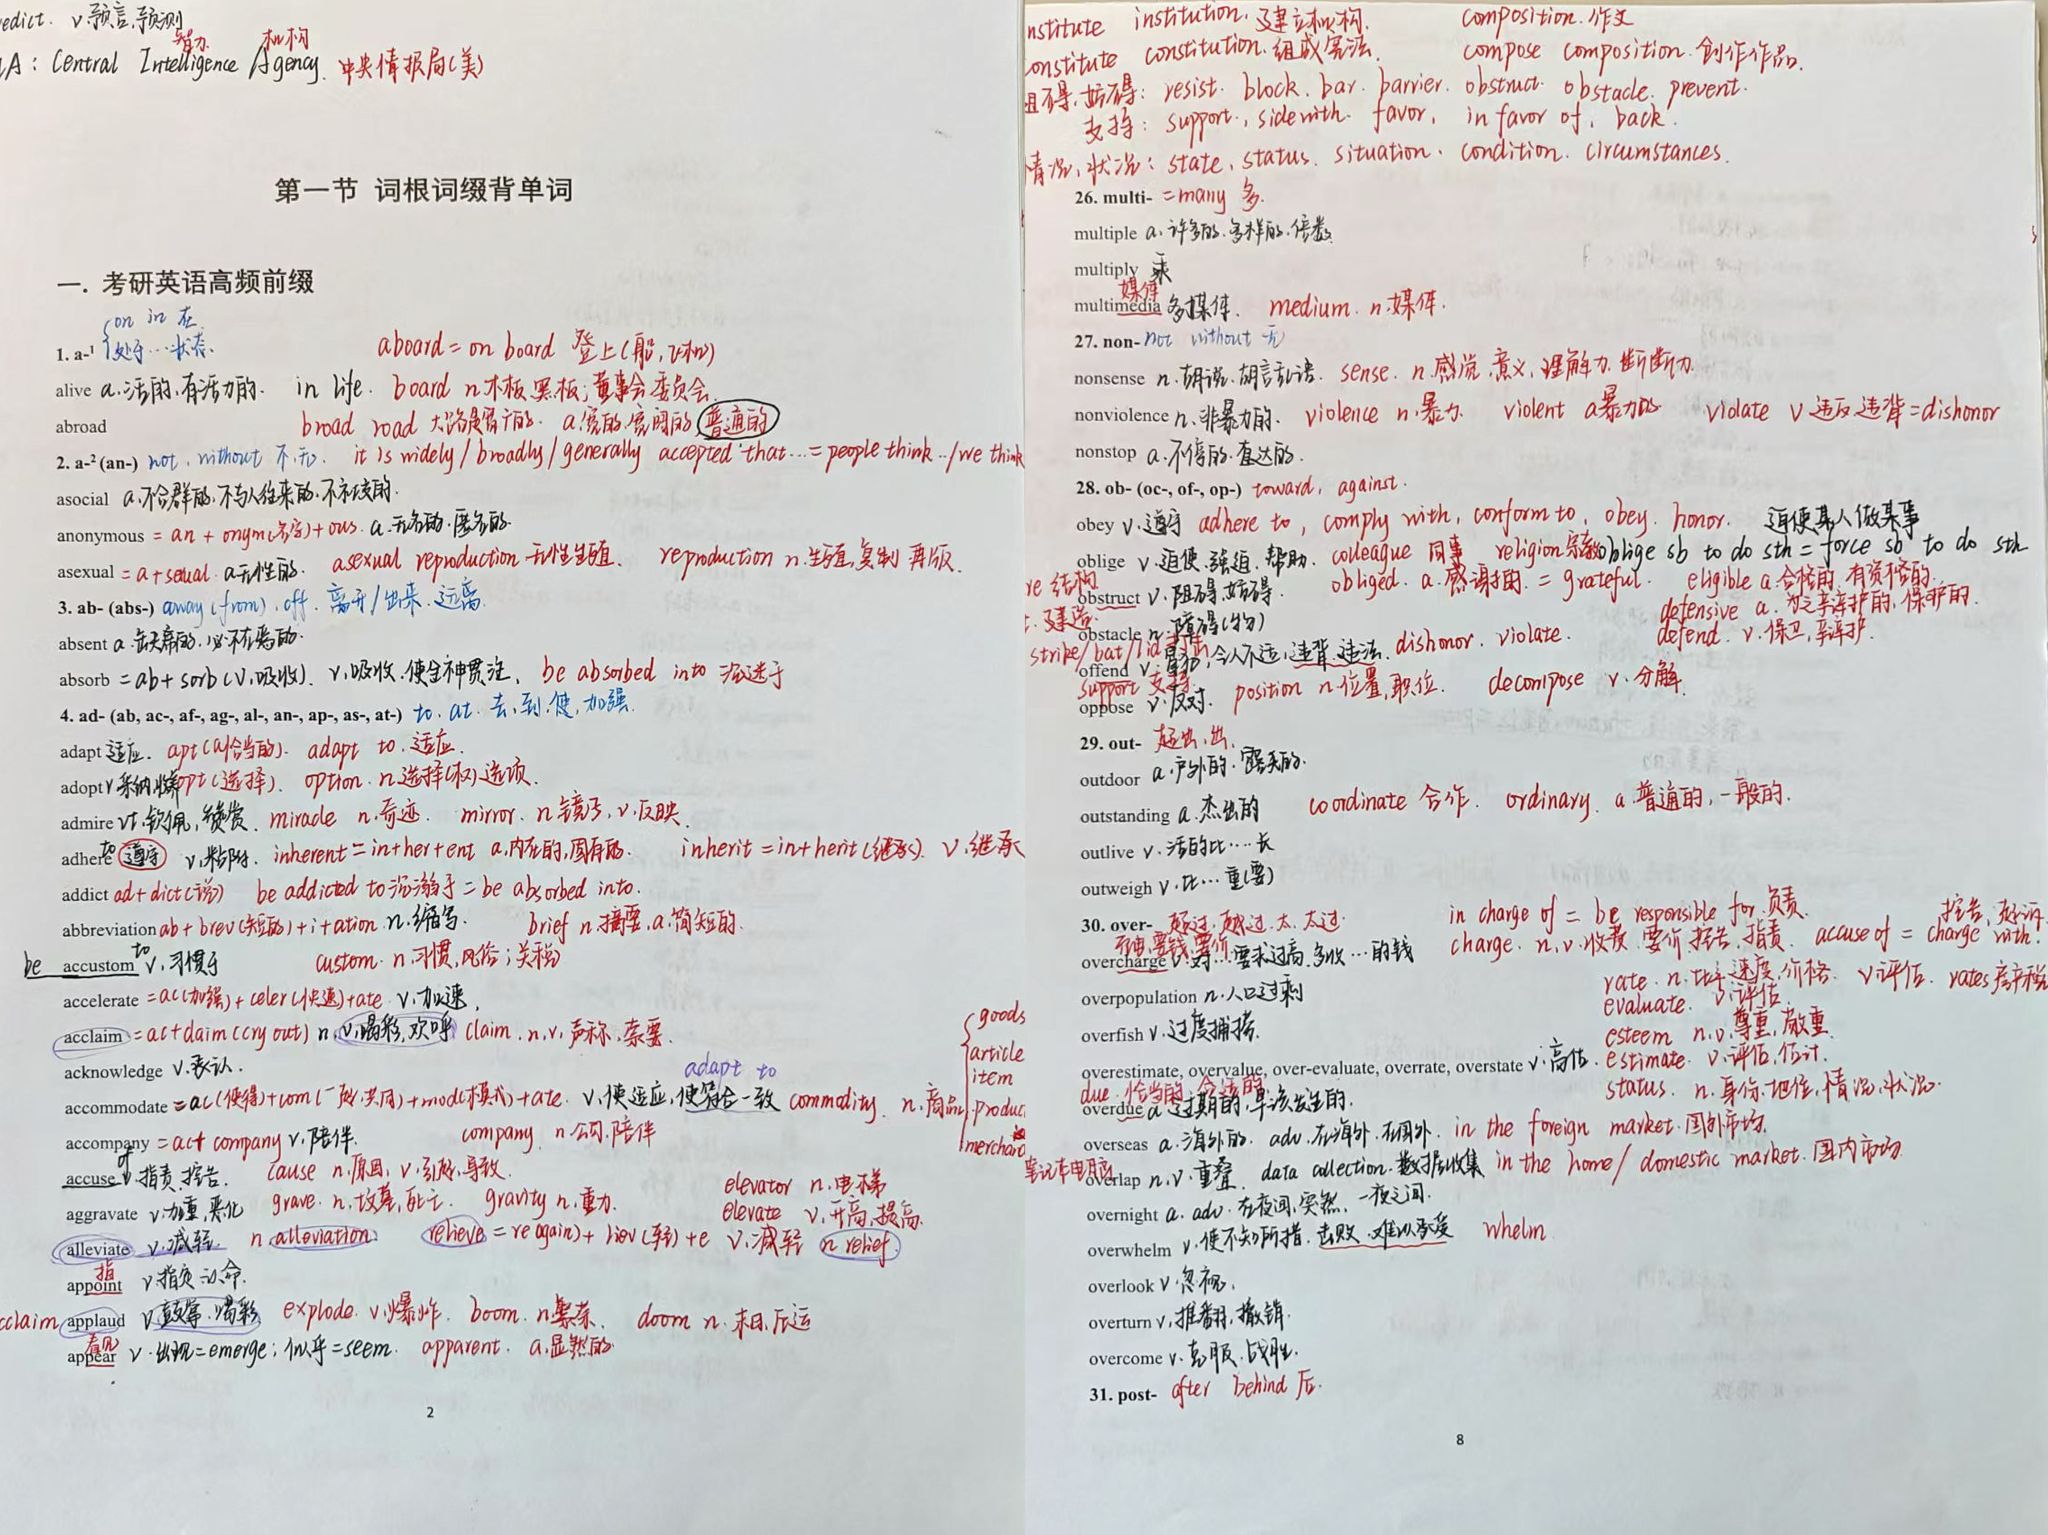 edict. v.预言,预测
智力 机构
A: Central Intelligence Agency. 中央情报局(美)
第一节 词根词缀背单词
一. 考研英语高频前缀
on in 在
1. a-¹ 处于…状态. aboard = on board 登上(船,飞机)
alive a.活的,有活力的. in life. board n.木板,黑板;董事会,委员会.
abroad broad road 大路是宽广的. a.宽的,宽阔的,普通的
2. a-² (an-) not, without 不,无. it is widely/broadly/generally accepted that...= people think../we think
asocial a.不合群的,不与人往来的,不社交的.
anonymous = an + onym(名字)+ous. a.无名的.匿名的.
asexual = a+sexual. a.无性的. asexual reproduction 无性生殖. reproduction n.生殖,复制 再版.
3. ab- (abs-) away (from). off. 离开/出来.远离.
absent a.缺席的.心不在焉的.
absorb = ab + sorb (v.吸收). v.吸收.使全神贯注. be absorbed into 沉迷于
4. ad- (ab, ac-, af-, ag-, al-, an-, ap-, as-, at-) to. at. 去,到,使,加强.
adapt 适应. apt (a.恰当的). adapt to. 适应.
adopt v.采纳,收养 opt (选择). option. n.选择(权).选项.
admire vt.钦佩,赞赏. miracle n.奇迹. mirror. n.镜子,v.反映.
adhere to 遵守 v.粘附. inherent = in+her+ent a.内在的,固有的. inherit = in+herit(继承). v.继承
addict ad+dict(说) be addicted to 沉溺于 = be absorbed into.
abbreviation ab + brev(短的)+i+ation n.缩写. brief n.摘要,a.简短的.
be accustom to v.习惯于 custom. n.习惯,风俗;关税
accelerate = ac(加强)+celer(快速)+ate v.加速,
acclaim = ac+claim (cry out) n,v.喝彩,欢呼 claim. n.v.声称.索要.
acknowledge v.承认.
adapt to
accommodate = ac(使得)+com(一致,共同)+mod(模式)+ate. v.使适应,使符合一致 commodity. n.商品.
goods
article
item
produc
merchan
accompany = ac+ company v.陪伴. company n.公司.陪伴
accuse of v.指责,控告. cause n.原因,v.引起,导致.
aggravate v.加重,恶化 grave. n.坟墓,死亡. gravity n.重力. elevator n.电梯
elevate v.升高,提高.
alleviate v.减轻. n alleviation. relieve = re(again) + liev(轻) +e v.减轻 n relief
指
appoint v.指定.认命.
cclaim applaud v.鼓掌.喝彩 explode. v.爆炸. boom. n.繁荣. doom n.末日.厄运
看见
appear v.出现 = emerge; 似乎 = seem. apparent. a.显然的.
2
nstitute institution. 建立机构. composition. 作文
onstitute constitution. 组成宪法. compose composition. 创作作品.
阻碍,妨碍: resist. block. bar. barrier. obstruct. obstacle. prevent.
支持: support., side with. favor. in favor of. back.
情况,状况: state, status. situation. condition. circumstances.
26. multi- = many 多.
multiple a.许多的.多样的.倍数
multiply 乘
媒体
multimedia 多媒体. medium. n.媒体.
27. non- not without 无
nonsense n.胡说.胡言乱语. sense. n.感觉,意义,理解力.判断力.
nonviolence n.非暴力的. violence n.暴力. violent a暴力的 violate v.违反,违背 = dishonor
nonstop a.不停的.直达的.
28. ob- (oc-, of-, op-) toward, against.
obey v.遵守 adhere to, comply with, conform to, obey. honor. 迫使某人做某事
oblige v.迫使.强迫.帮助. colleague 同事 religion 宗教 oblige sb to do sth = force sb to do sth
re 结构 obliged. a.感谢的. = grateful. eligible a.合格的,有资格的.
obstruct v.阻碍.妨碍. defensive a.为之辩护的,保护的.
建造 obstacle n.障碍(物) defend. v.保卫,辩护.
strike/bat/
offend v.冒犯,令人不适,违背.违法. dishonor. violate.
support 支持. position n.位置,职位. decompose v.分解.
oppose v.反对.
29. out- 超出,出.
outdoor a.户外的.露天的.
outstanding a.杰出的 coordinate 合作. ordinary. a.普通的,一般的.
outlive v.活的比…长
outweigh v.比…重(要)
30. over- 超过.越过.太.太过. in charge of = be responsible for. 负责. 控告,起诉
overcharge v.对…要求过高,多收…的钱 charge. n.v.收费.要价.控告.指责. accuse of = charge with.
overpopulation n.人口过剩 rate. n.比率.速度,价格. v.评估. rates 房产税
evaluate. v.评估.
overfish v.过度捕捞. esteem n.v.尊重,敬重.
overestimate, overvalue, over-evaluate, overrate, overstate v.高估. estimate. v.评估,估计.
due. 恰当的,合适的 status. n.身份.地位,情况,状况.
overdue a.过期的,早该发生的.
overseas a.海外的. adv.在海外.在国外. in the foreign market. 国外市场.
笔记本电脑 overlap n.v.重叠. data collection. 数据收集 in the home/ domestic market. 国内市场.
overnight a. adv.在夜间,突然,一夜之间.
overwhelm v.使不知所措.击败.难以承受 whelm.
overlook v.忽视.
overturn v.推翻.撤销.
overcome v.克服.战胜.
31. post- after behind 后.
8